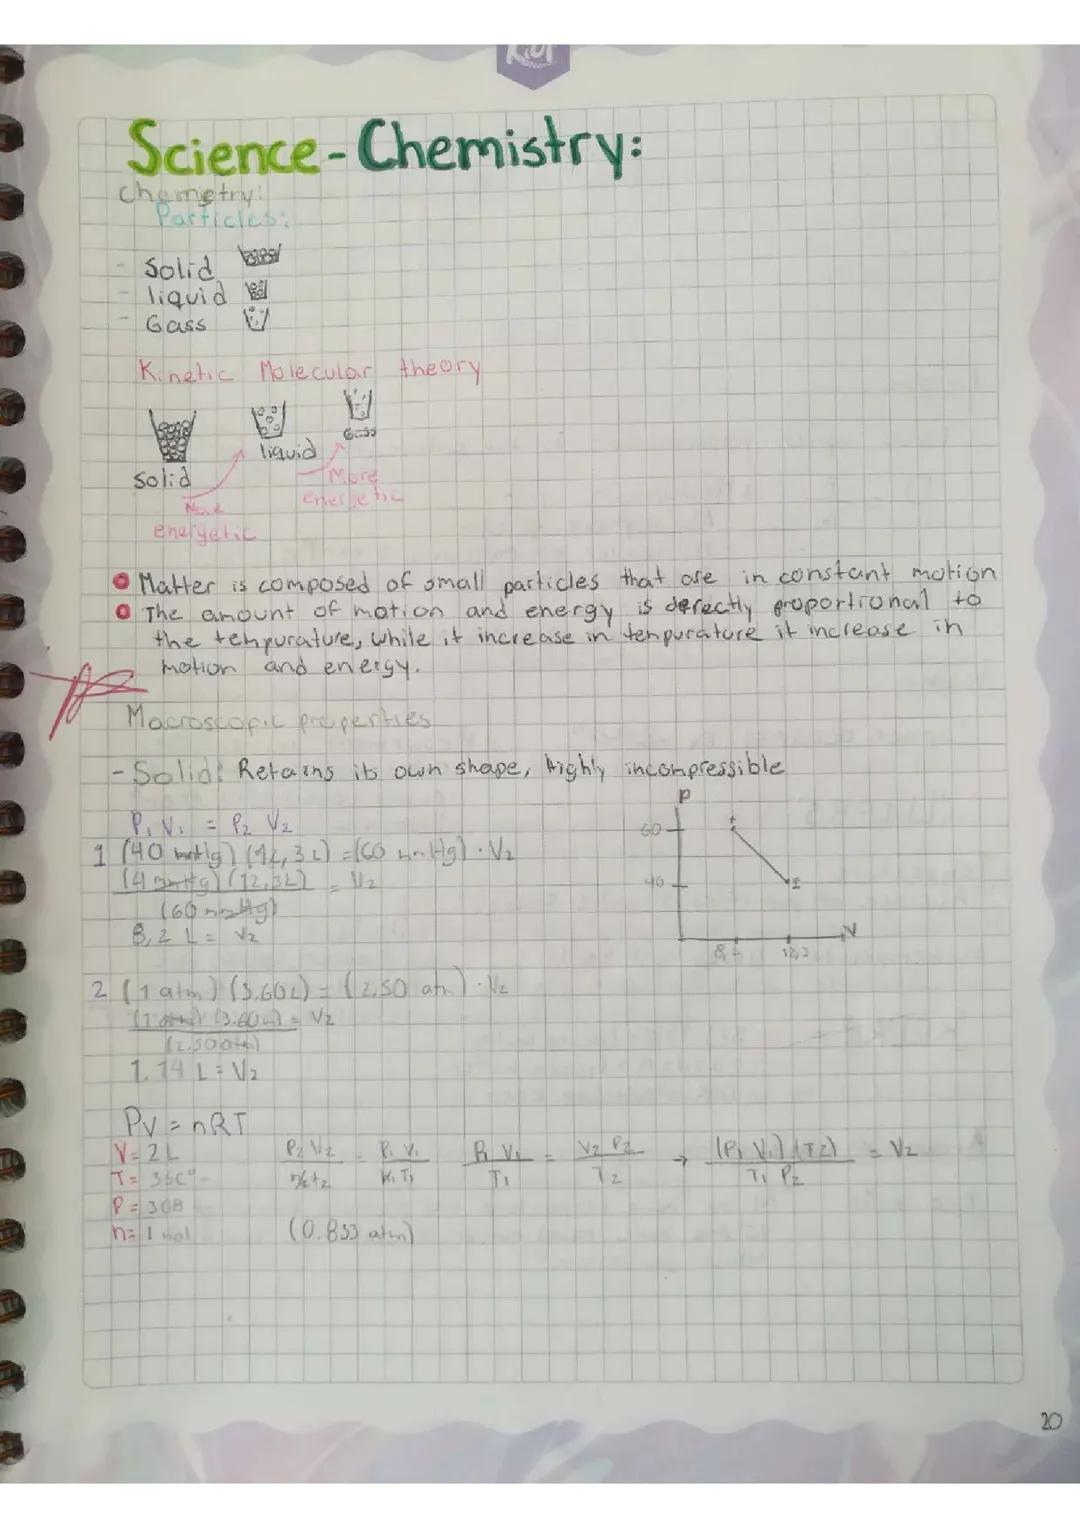 Kiut
Science-Chemistry:
Chemetry:
Particles:
- Solid
- liquid
- Gass
Kinetic Molecular theory
solid
liquid
Gass
More
energetic
More
energetic
Matter is composed of small particles that are in constant motion
The amount of motion and energy is derectly proportional to
the tempurature, while it increase in tempurature it increase in
motion and energy.
Macroscopic properties
- Solid: Retains its own shape, highly incompressible
P₁ V₁ = P₂ V₂
1 (40 mmHg) (12,3 L) = (60 mmHg) · V₂
(4 mmHg) (12,3L) = V₂
(60 mmHg)
8,2 L = V₂
P
60
40
V
12,3
2 (1 atm) (3.60L) = (2.50 atm) · V₂
(1 atm) (3.60L) = V₂
(2.50 atm)
1.14 L = V₂
PV = nRT
V = 2 L
T = 35C° -
P = 308
n = 1 mol
P₂ V₂ = P₁ V₁
n₂ t₂ n₁ T₁
P₁ V₁ = V₂ P₂
T₁ T₂
→ (P₁ V₁) (T2) = V₂
T₁ P₂
(0.833 atm)
20